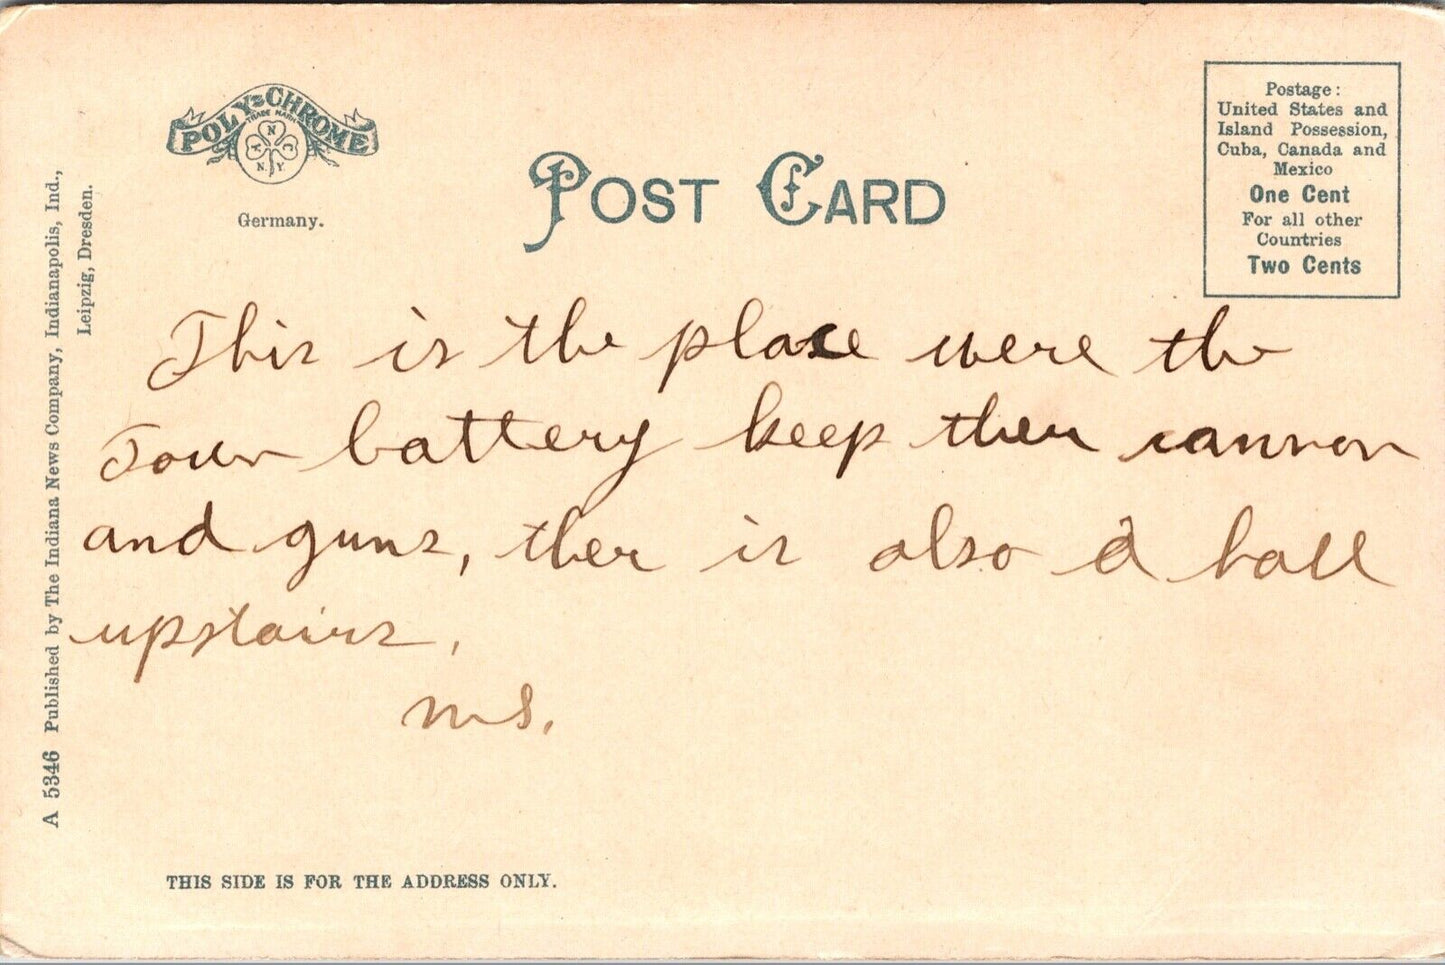 POLY-CHROME
TRADE MARK
A N C
N. Y.
Germany.
POST CARD
Postage:
United States and
Island Possession,
Cuba, Canada and
Mexico
One Cent
For all other
Countries
Two Cents
This is the place were the
Town battery keep ther cannon
and guns, ther is also a hall
upstairs.
M S.
A 5346 Published by The Indiana News Company, Indianapolis, Ind.,
Leipzig, Dresden.
THIS SIDE IS FOR THE ADDRESS ONLY.